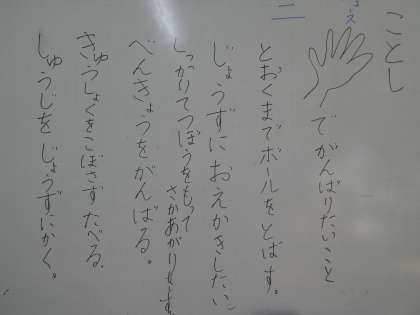 ことし
でがんばりたいこと
とおくまでボールをとばす。
じょうずにおえかきしたい
しっかりてつぼうをもって
さかあがりをする
べんきょうをがんばる。
きゅうしょくをこぼさずたべる。
しゅうじをじょうずにかく。